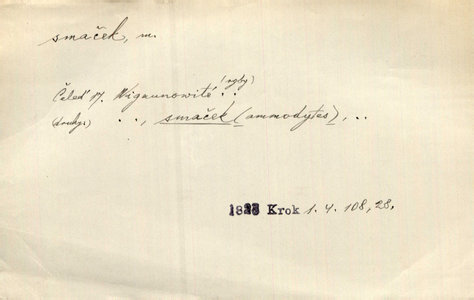 smaček, m.
(ryby)
Čeleď 17. . .
(druhy) . ., smaček (ammodytes), . .
Krok 1. 4. 108, 28.